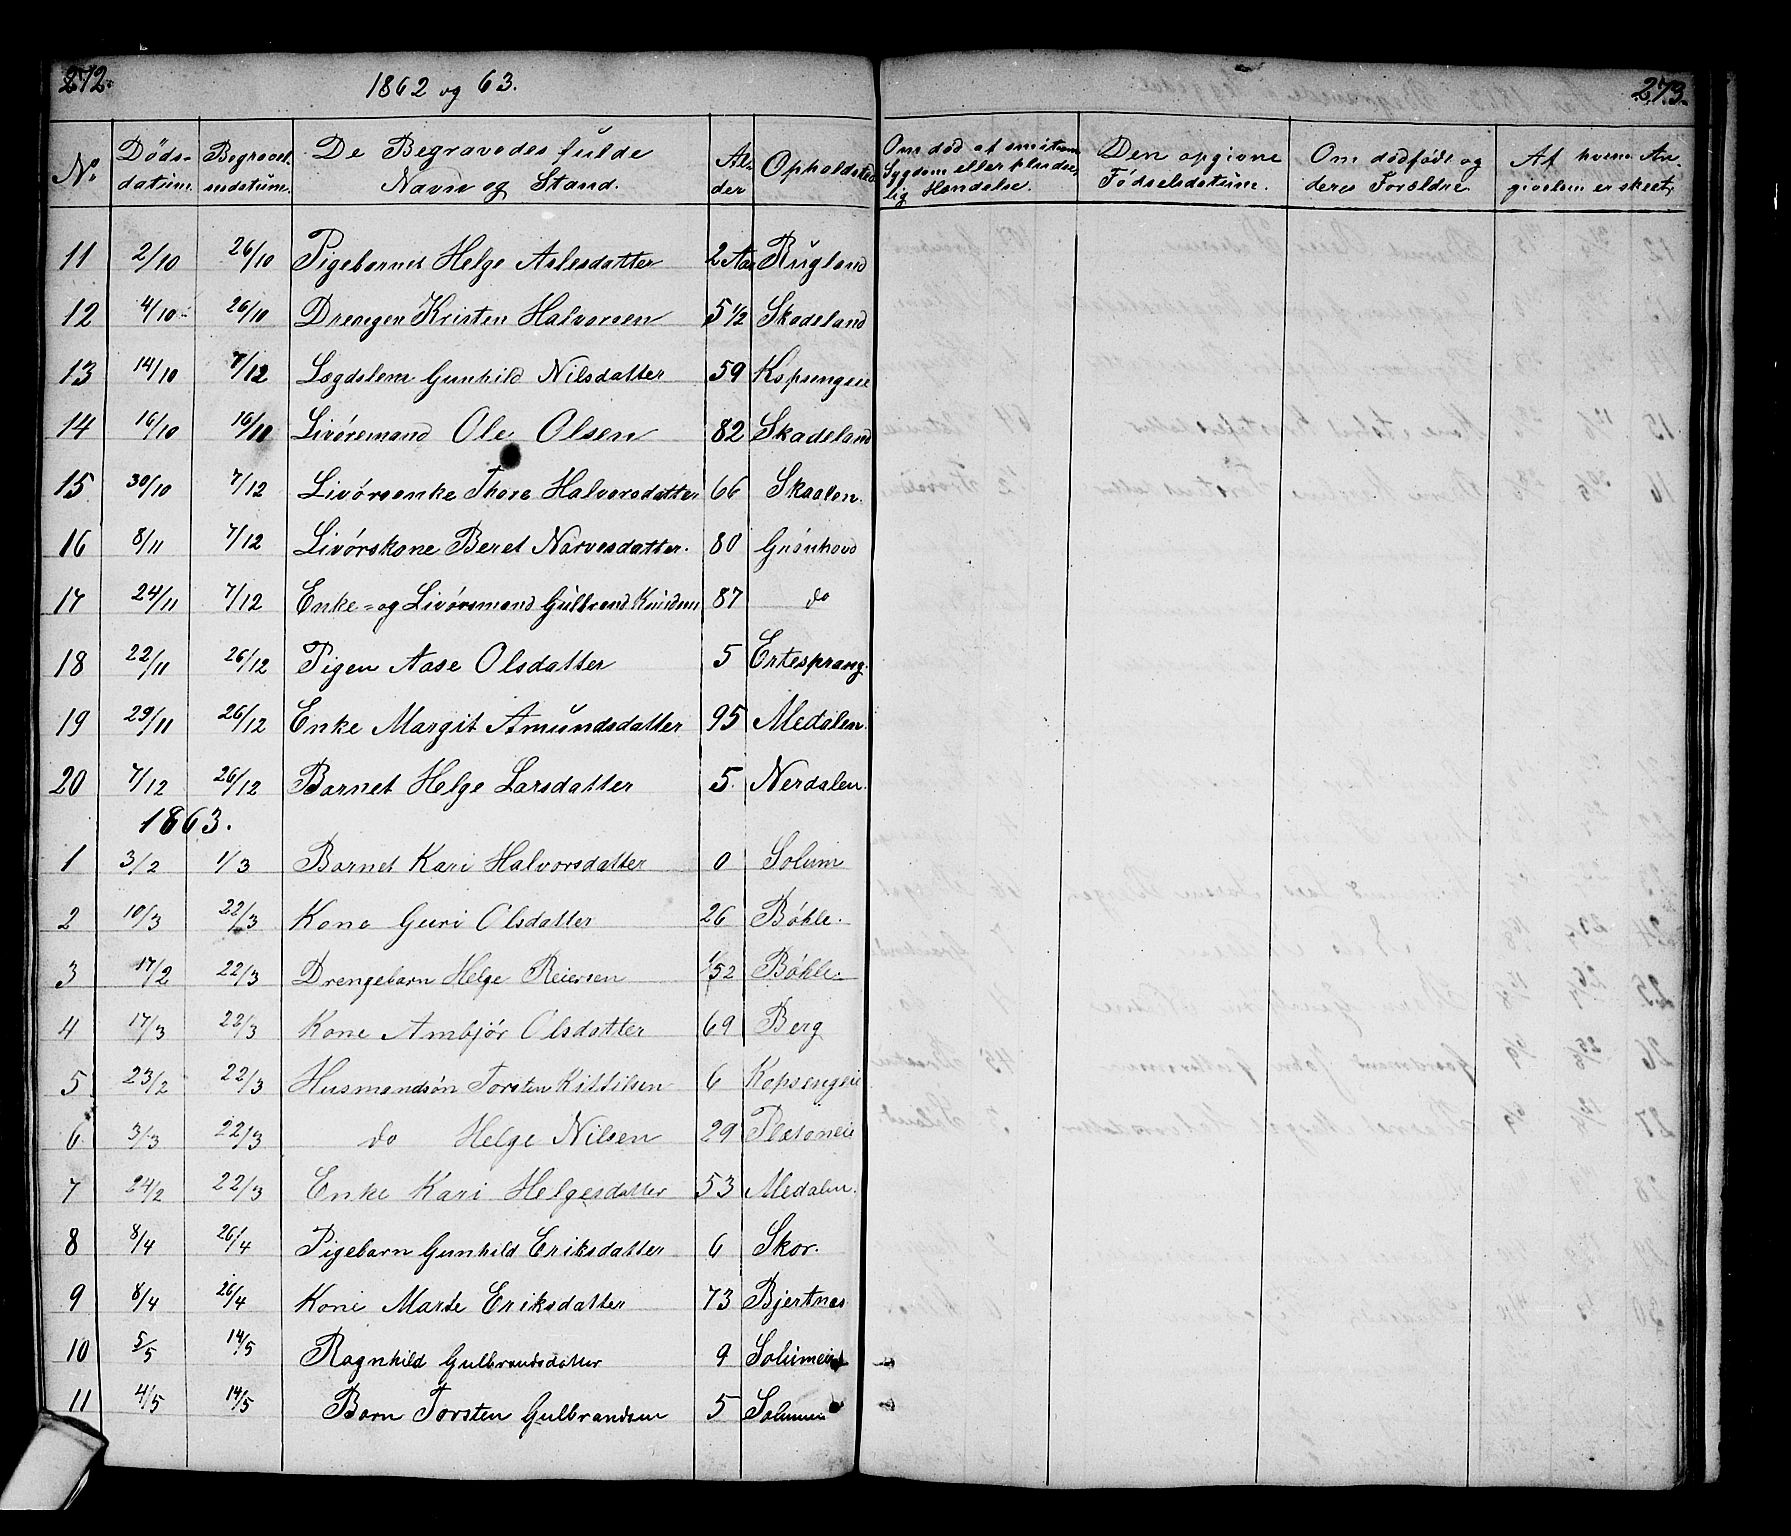 272.
1862 og 63.
273.
No | Dødsdatum. | Begravelsesdatum. | De Begravedes fulde Navn og Stand. | Alder | Opholdsted | Om død af smitsom Sygdom eller ulykkelig Hændelse. | Den opgivne Fødselsdatum. | Om dødfødt og deres Forældre | Af hvem Angivelsen er skeet.
11 | 2/10 | 26/10 | Pigebarnet Helge Aslesdatter | 2 Aar | Rugland
12 | 4/10 | 26/10 | Drengen Kristen Halvorsen | 5 1/2 | Skadeland
13 | 14/10 | 7/12 | Lægdslem Gunhild Nilsdatter | 59 | Kopsengeie
14 | 16/10 | 16/11 | Livøremand Ole Olsen | 82 | Skadeland
15 | 30/10 | 7/12 | Livørsenke Thore Halvorsdatter | 66 | Skaalen.
16 | 8/11 | 7/12 | Livørskone Beret Narvesdatter. | 80 | Grønhovd
17 | 24/11 | 7/12 | Enke= og Livørsmand Gulbrand Knudsen | 87 | do
18 | 22/11 | 26/12 | Pigen Aase Olsdatter | 5 | Ertesprang.
19 | 29/11 | 26/12 | Enke Margit Amundsdatter | 95 | Medalen.
20 | 7/12 | 26/12 | Barnet Helge Larsdatter | 5. | Nerdalen.
1863.
1 | 3/2 | 1/3 | Barnet Kari Halvorsdatter | 0 | Solum
2 | 10/3 | 22/3 | Kone Guri Olsdatter | 26 | Bøhle.
3 | 17/2 | 22/3 | Drengebarn Helge Reiersen | 1/52 | Bøhle.
4 | 17/3 | 22/3 | Kone Ambjør Olsdatter | 69 | Berg
5 | 23/2 | 22/3 | Husmandsøn Torsten Kittilsen | 6 | Kopsengeie
6 | 3/3 | 22/3 | do Helge Nilsen | 29 | Plasoneie
7 | 24/2 | 22/3 | Enke Kari Helgesdatter | 53 | Medalen.
8 | 8/4 | 26/4 | Pigebarn Gunhild Eriksdatter | 6 | Skor.
9 | 8/4 | 26/4 | Kone Marte Eriksdatter | 73 | Bjertnes
10 | 5/5 | 14/5 | Ragnhild Gulbrandsdatter | 9 | Solumeie
11 | 4/5 | 14/5 | Barn Torsten Gulbrandsen | 5 | Solumeie